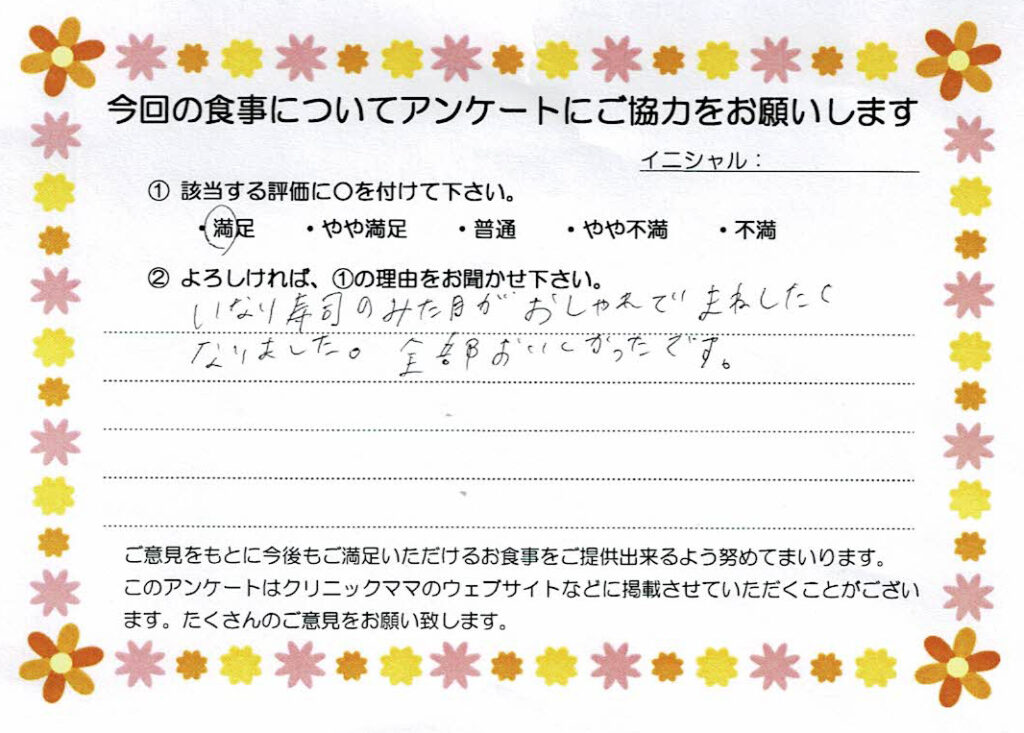 今回の食事についてアンケートにご協力をお願いします
イニシャル：
① 該当する評価に〇を付けて下さい。
・満足 ・やや満足 ・普通 ・やや不満 ・不満
② よろしければ、①の理由をお聞かせ下さい。
いなり寿司のみた目がおしゃれでまねしたく
なりました。 全部おいしかったです。
ご意見をもとに今後もご満足いただけるお食事をご提供出来るよう努めてまいります。
このアンケートはクリニックママのウェブサイトなどに掲載させていただくことがござい
ます。たくさんのご意見をお願い致します。